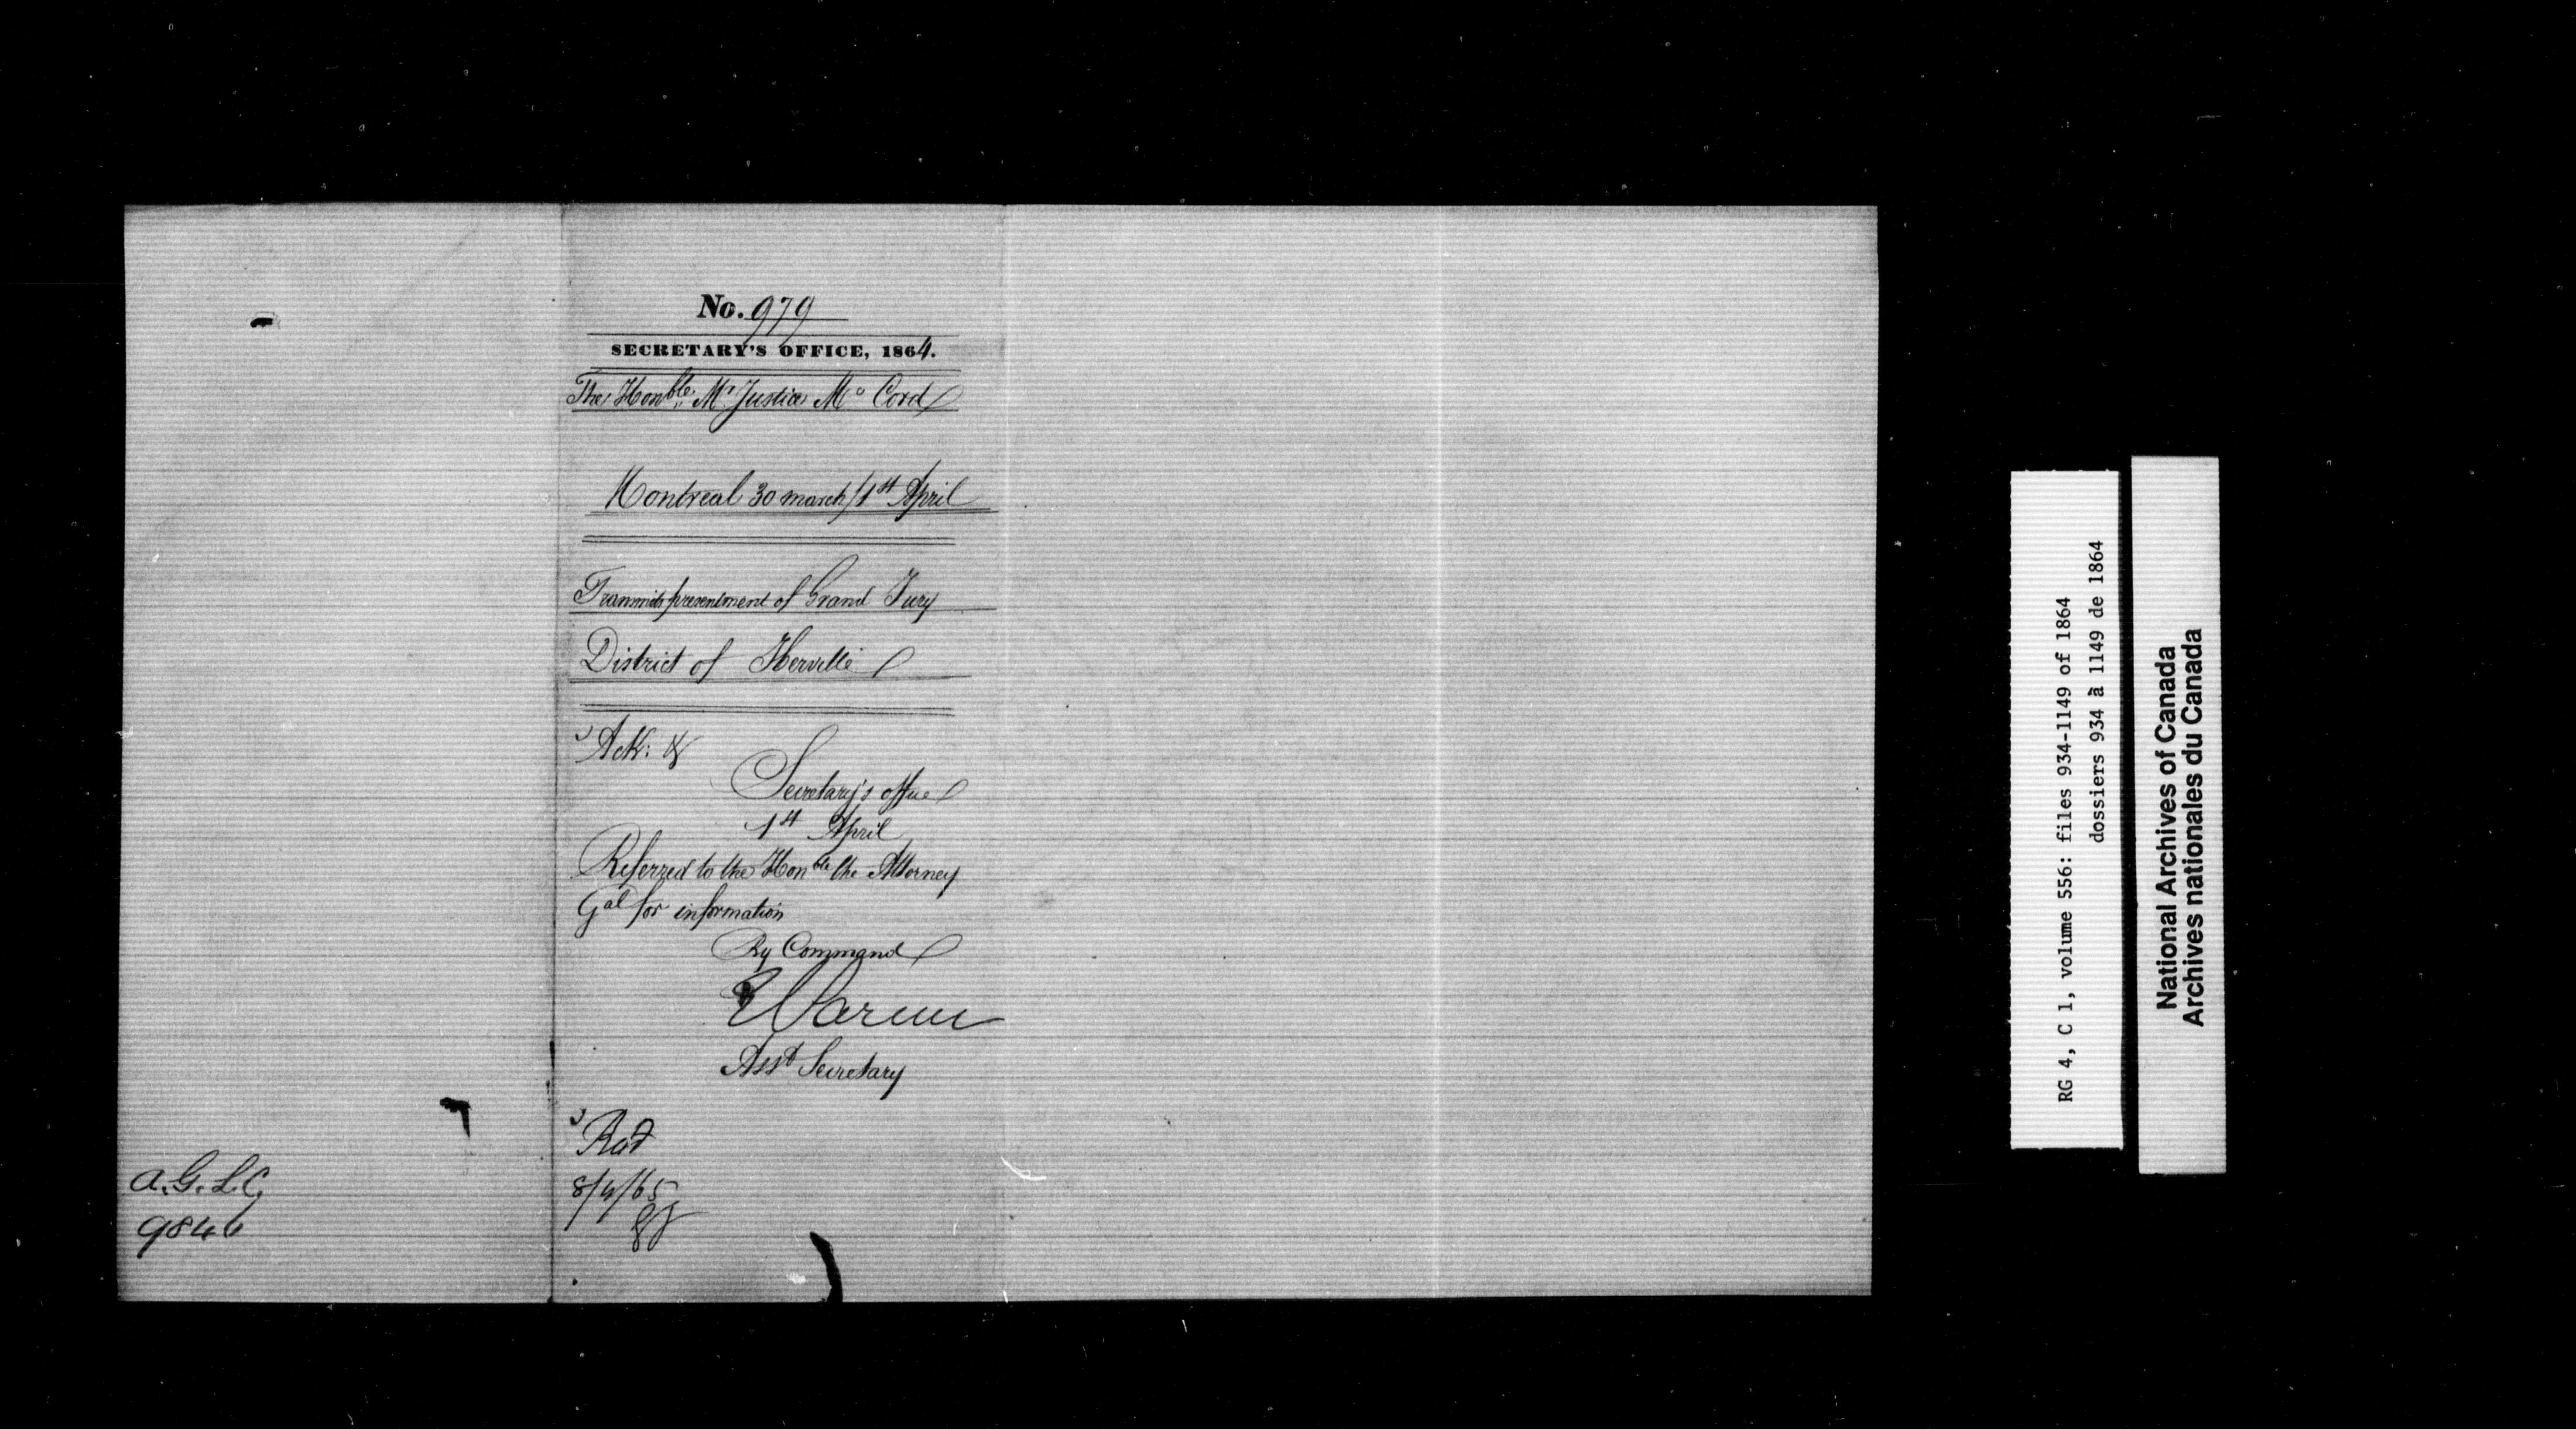 No. 979
SECRETARY'S OFFICE, 1864.
The Honble. Mr Justice Mc Cord
Montreal 30 march/1st April
Transmits presentment of Grand Jury
District of Iberville
Ack: &
Secretary's office
1st April
Referred to the Honble the Attorney
Gal for information
By Command
Asst Secretary
8/4/65
A.G.L.C.
9846
RG 4, C 1, volume 556: files 934-1149 of 1864
dossiers 934 à 1149 de 1864
National Archives of Canada
Archives nationales du Canada